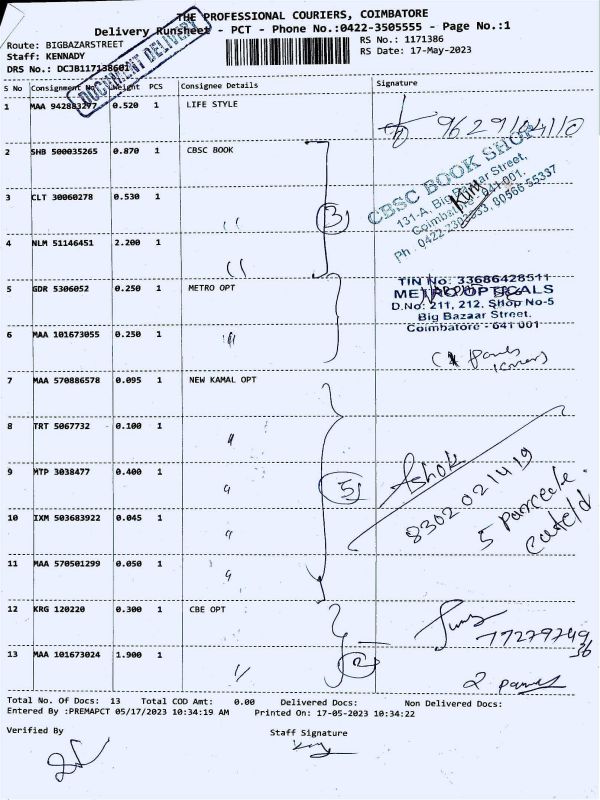 THE PROFESSIONAL COURIERS, COIMBATORE
Delivery Runsheet - PCT - Phone No.:0422-3505555 - Page No.:1
Route: BIGBAZARSTREET
RS No.: 1171386
Staff: KENNADY
RS Date: 17-May-2023
DRS No.: DCJB1171386
DOCUMENT DELIVERY
S No Consignment No Weight PCS Consignee Details Signature
1 MAA 942883277 0.520 1 LIFE STYLE
9629104110
2 SHB 500035265 0.870 1 CBSC BOOK
CBSC BOOK SHOP
131-A, Big Bazaar Street,
Coimbatore - 641 001.
Ph : 0422-, 80566 55337
3 CLT 30060278 0.530 1 "
3
4 NLM 51146451 2.200 1 "
5 GDR 5306052 0.250 1 METRO OPT
TIN No: 33686428511
METRO OPTICALS
D.No: 211, 212, Shop No-5
Big Bazaar Street,
Coimbatore - 641 001
6 MAA 101673055 0.250 1 "
7 MAA 570886578 0.095 1 NEW KAMAL OPT
8 TRT 5067732 0.100 1 "
9 MTP 3038477 0.400 1 "
5
Ashok
8302021419
5
10 IXM 503683922 0.045 1 "
11 MAA 570501299 0.050 1 "
12 KRG 120220 0.300 1 CBE OPT
77279749
36
13 MAA 101673024 1.900 1 "
2
2
Total No. Of Docs: 13 Total COD Amt: 0.00 Delivered Docs: Non Delivered Docs:
Entered By :PREMAPCT 05/17/2023 10:34:19 AM Printed On: 17-05-2023 10:34:22
Verified By
Staff Signature